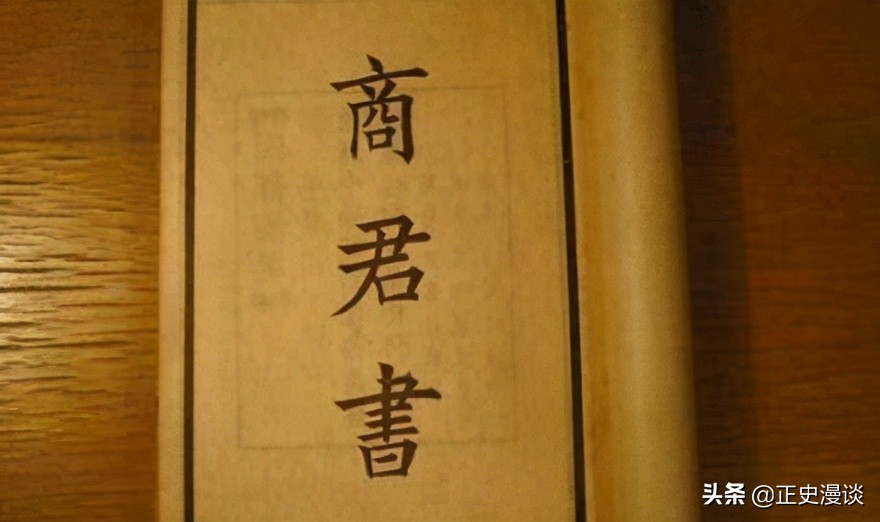 商君書
头条 @正史漫谈